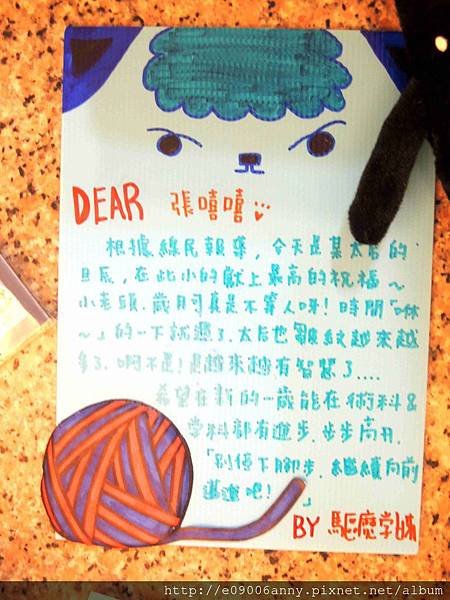 DEAR 張嘻嘻
根據線民報導，今天是某太后的
旦辰，在此小的獻上最高的祝福～
小老頭.歲月可真是不等人呀！時間「咻
～」的一下就過了.太后也皺紋越來越
多了.啊不是！是越來越有智慧了....
希望在新的一歲能在術科&
學科都有進步.步步高升.
「別停下腳步.繼續向前
邁進吧！」
BY 驅魔學姊
http://e09006anny.pixnet.net/album